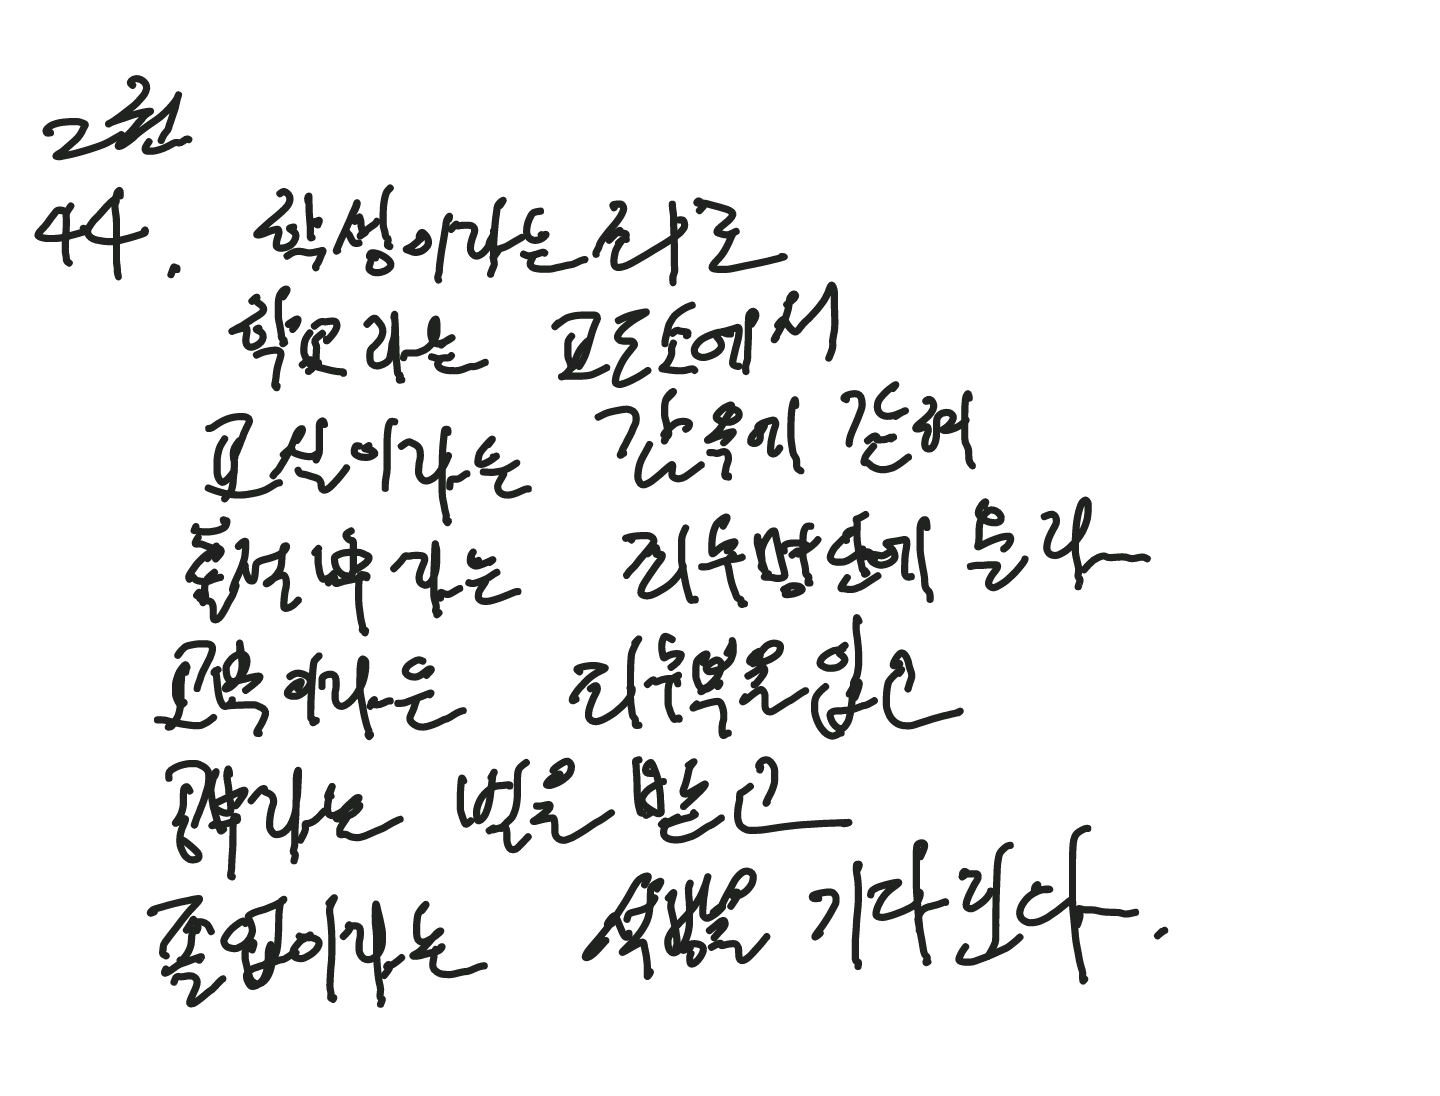 2월
44. 학생이라는 죄로
학교라는 교도소에서
교실이라는 감옥에 갇혀
출석부라는 죄수명단에 올라
교복이라는 죄수복을 입고
공부라는 벌을 받고
졸업이라는 석방을 기다린다.